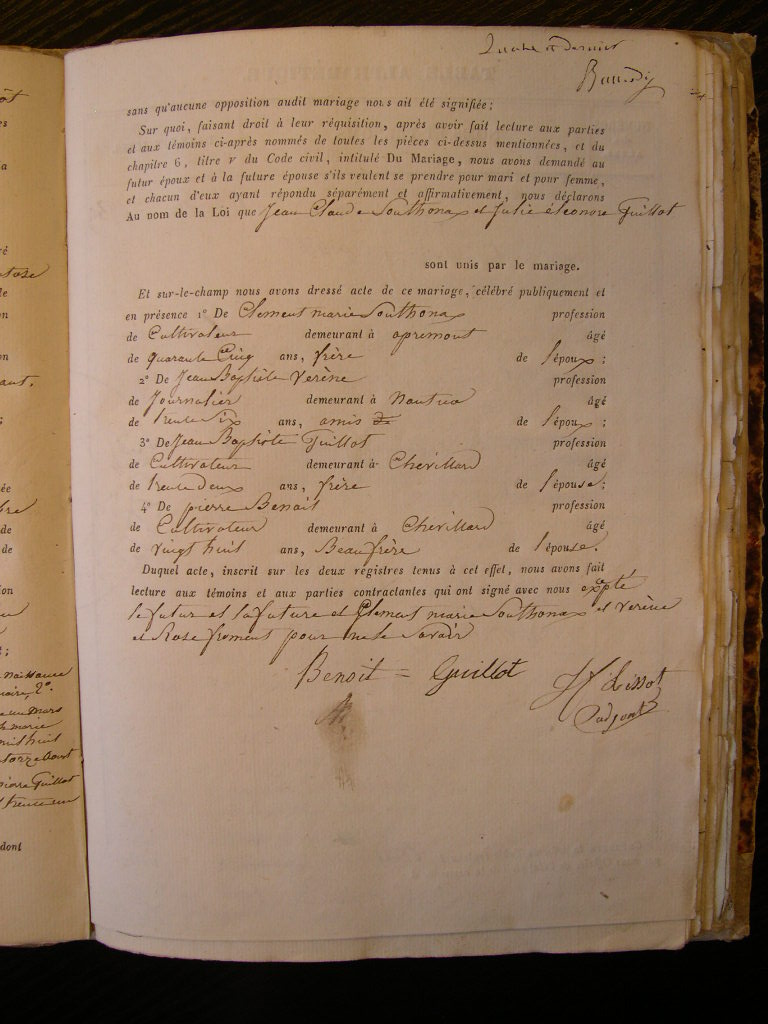 et dernier
sans qu'aucune opposition audit mariage nous ait été signifiée;
Sur quoi, faisant droit à leur réquisition, après avoir fait lecture aux parties
et aux témoins ci-après nommés de toutes les pièces ci-dessus mentionnées, et du
chapitre 6, titre v du Code civil, intitulé Du Mariage, nous avons demandé au
futur époux et à la future épouse s'ils veulent se prendre pour mari et pour femme,
et chacun d'eux ayant répondu séparément et affirmativement, nous déclarons
Au nom de la Loi que Jean Claude Southonax et Julie éléonore Guillot
sont unis par le mariage.
Et sur-le-champ nous avons dressé acte de ce mariage, célébré publiquement et
en présence 1° De Clement marie Southonax profession
de Cultivateur demeurant à apremont âgé
de quarante Cinq ans, frère de l'époux;
2° De Jean Baptiste Verène profession
de Journalier demeurant à Nantua âgé
de trente Six ans, amis de l'époux;
3° De Jean Baptiste Guillot profession
de Cultivateur demeurant à Chevillard âgé
de trente deux ans, frère de l'épouse;
4° De pierre Benoit profession
de Cultivateur demeurant à Chevillard âgé
de vingt huit ans, Beaufrère de l'épouse.
Duquel acte, inscrit sur les deux régistres tenus à cet effet, nous avons fait
lecture aux témoins et aux parties contractantes qui ont signé avec nous excpté
le futur et la future et Clement marie Southonax et Verène
et Rose froment pour ne le Savoir
Benoit = Guillot
adjoint
ôt
é
de
n
naissance
marie
huit
pierre Guillot
dont